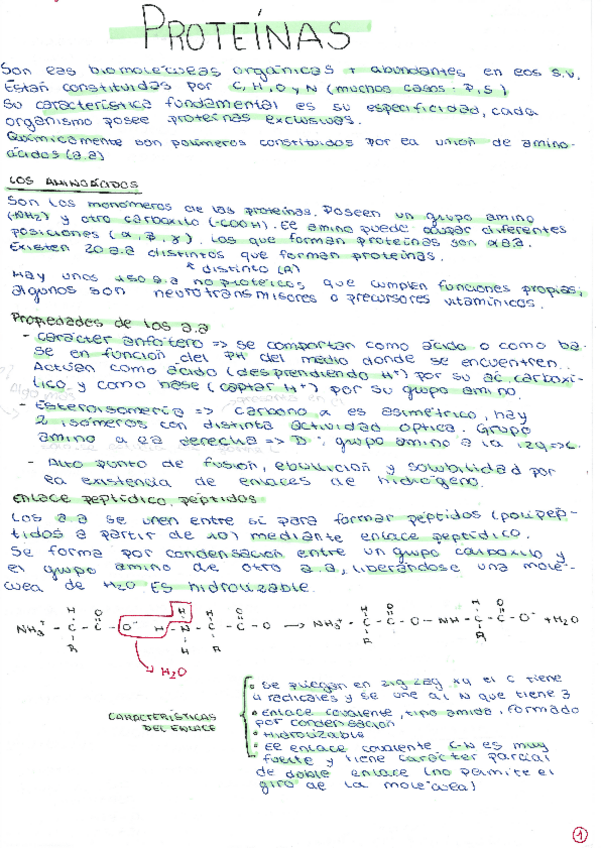 PROTEÍNAS
Son las biomoléculas orgánicas + abundantes en los s.v.
Están constituidas por C, H, O y N (muchos casos: P, S)
Su característica fundamental es su especificidad, cada
organismo posee proteínas exclusivas.
Químicamente son polímeros constituidos por la unión de amino-
ácidos (a.a)
LOS AMINOÁCIDOS
Son los monómeros de las proteínas. Poseen un grupo amino
(-NH2) y otro carboxilo (-COOH). El amino puede ocupar diferentes
posiciones (α, β, γ). Los que forman proteínas son αaa.
Existen 20 a.a distintos que forman proteínas.
distinto (R)
Hay unos 150 a.a no proteicos que cumplen funciones propias;
algunos son neurotransmisores o precursores vitamínicos.
Propiedades de los a.a
- Carácter anfótero => se comportan como ácido o como ba-
se en función del PH del medio donde se encuentren.
Actúan como ácido (desprendiendo H+) por su ac. carboxí-
lico y como base (captar H+) por su grupo amino.
- Esteroisomería => carbono α es asimétrico, hay
2 isómeros con distinta actividad óptica. Grupo
amino a la derecha => D ; grupo amino a la izq => L
- Alto punto de fusión, ebullición y solubilidad por
la existencia de enlaces de hidrógeno.
Enlace peptídico. péptidos
Los a.a se unen entre sí para formar péptidos (polipép-
tidos a partir de 10) mediante enlace peptídico.
Se forma por condensación entre un grupo carboxilo y
el grupo amino de otro a.a, liberándose una molé-
cula de H2O. ES hidrolizable.
H O H H O H O H O
NH3+ - C - C - O- H - N - C - C - O → NH3+ - C - C - O - NH - C - C - O- + H2O
R H R R R
H2O
CARACTERÍSTICAS
DEL ENLACE
• Se pliegan en zig zag xq el C tiene
4 radicales y se une al N que tiene 3
• enlace covalente, tipo amida, formado
por condensación
• Hidrolizable
• El enlace covalente C-N es muy
fuerte y tiene carácter parcial
de doble enlace (no permite el
giro de la molécula)
1